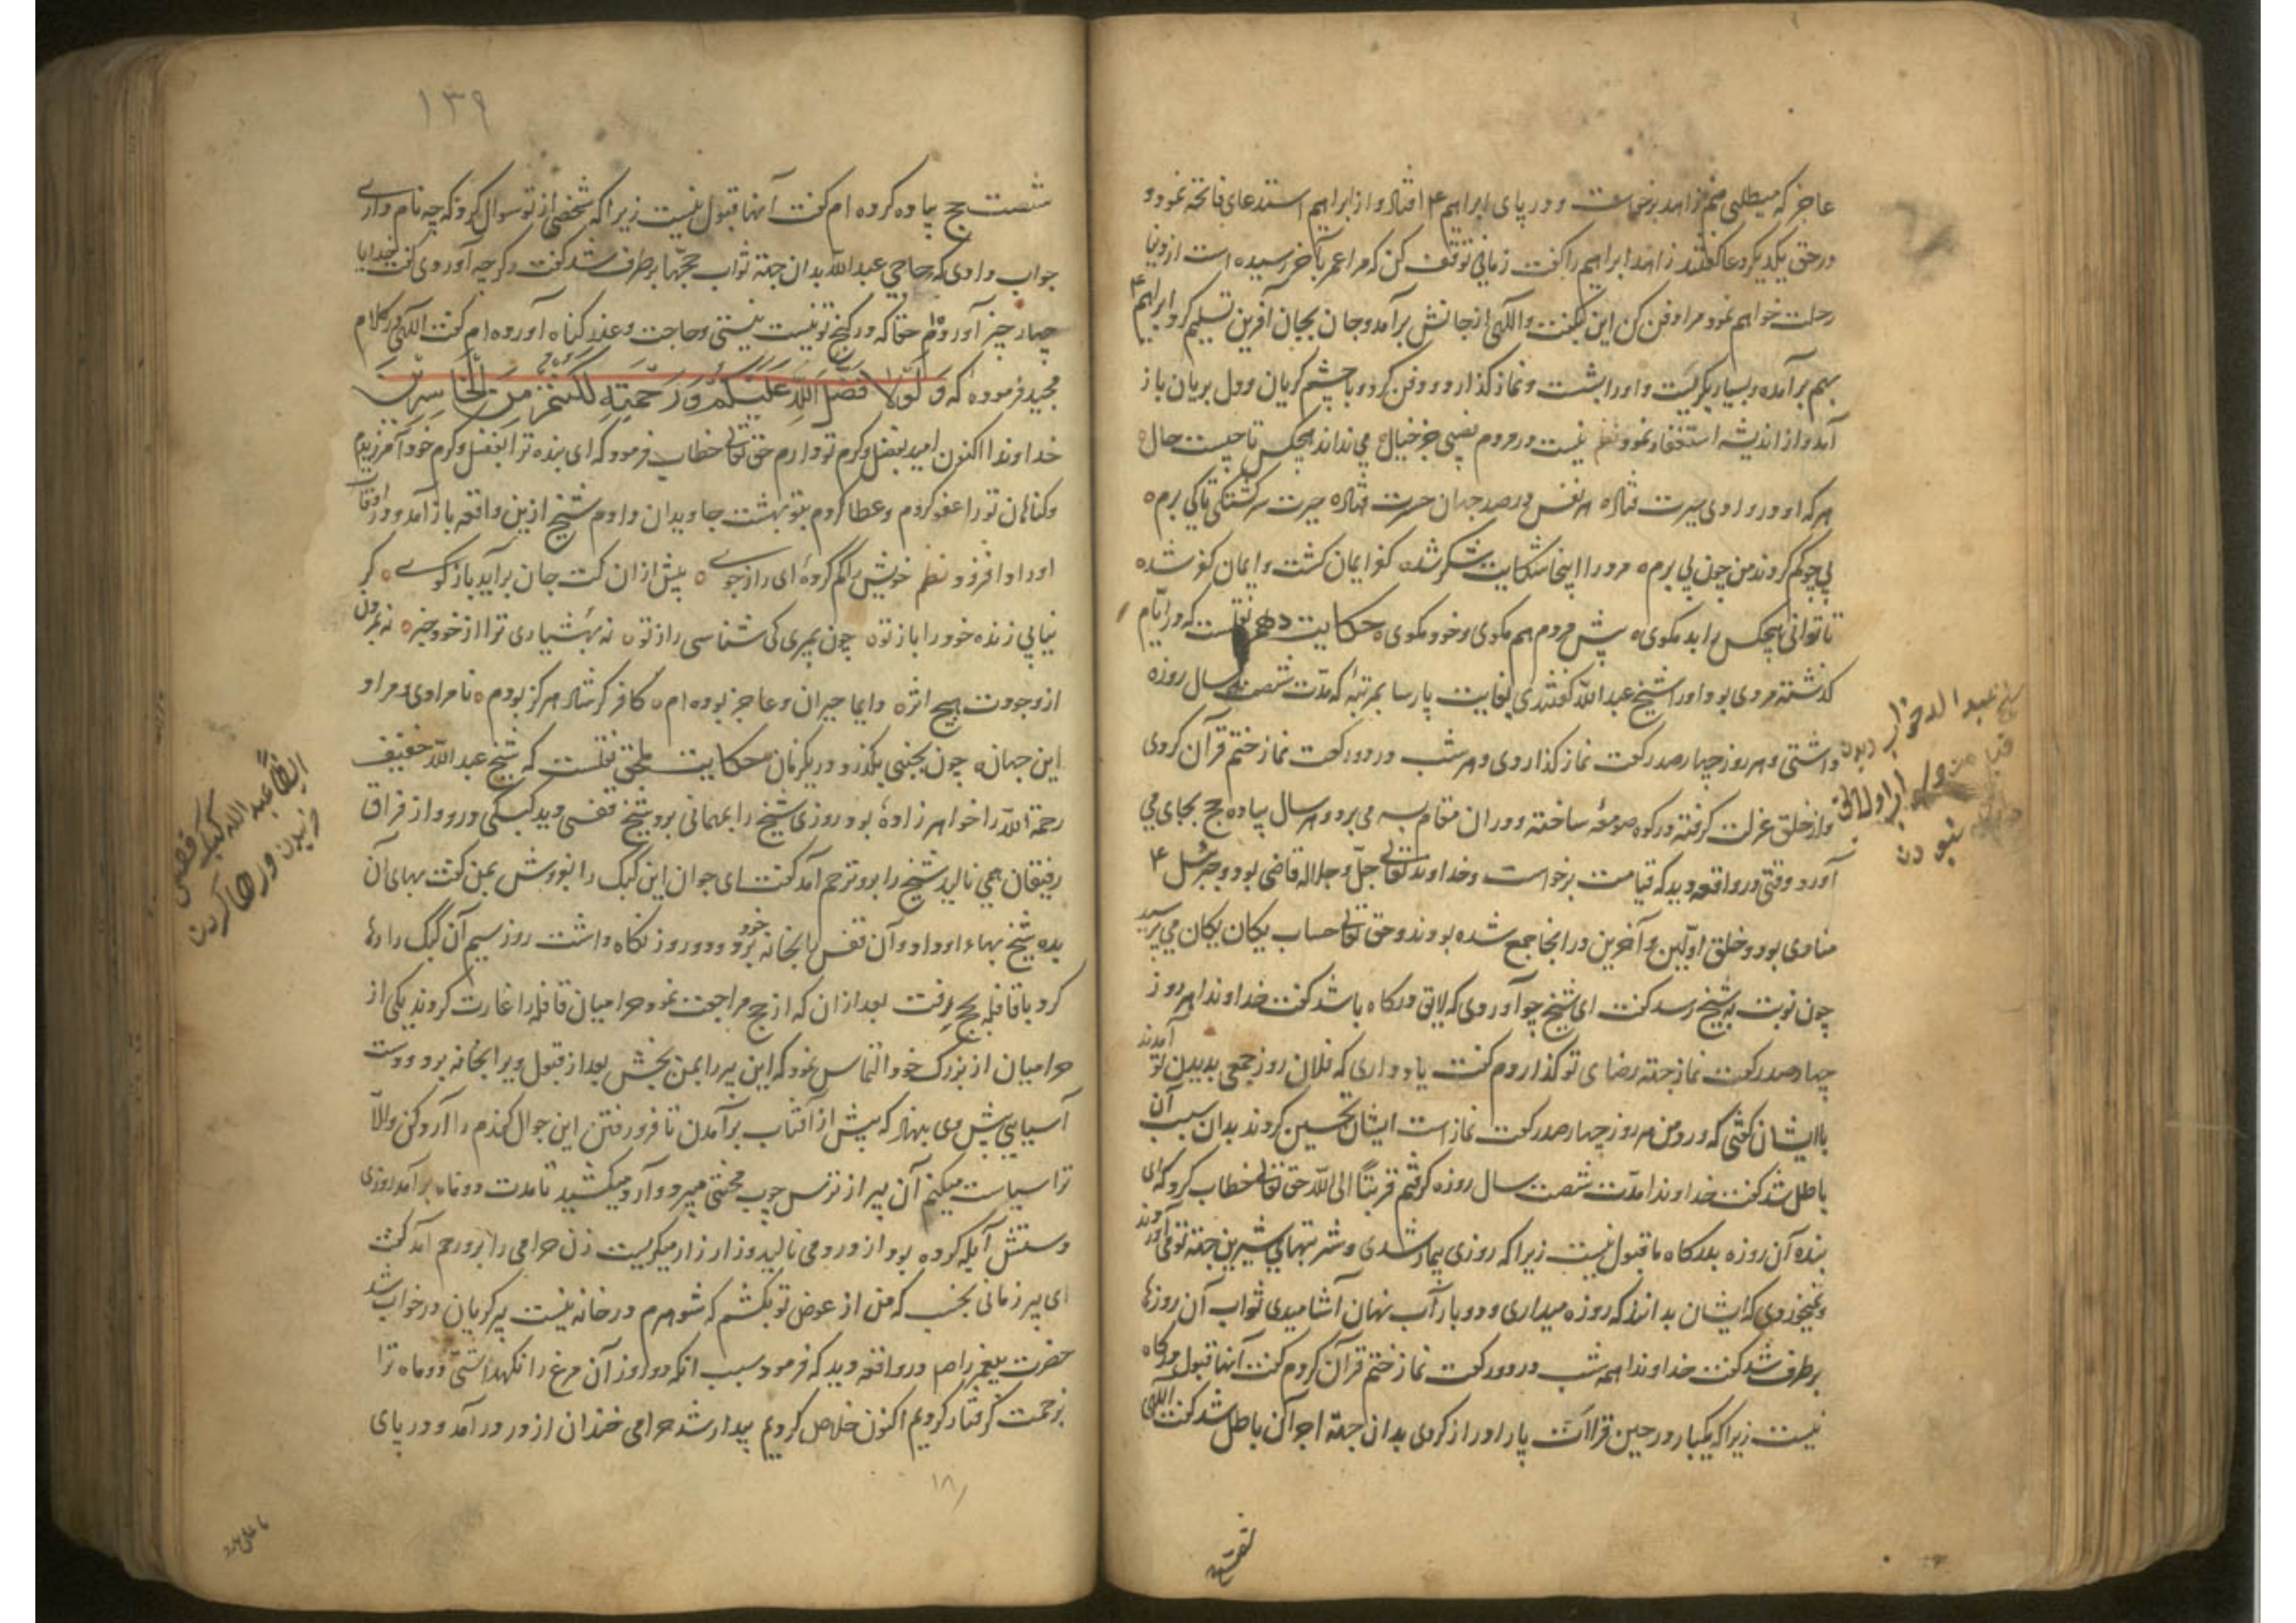 عاجز که میطلبی منم زاهد برخاست و در پای ابراهیم ۴ افتاد و از ابراهیم استدعای فاتحه نمود و
در حق یکدیگر دعا گفتند زاهد ابراهیم را گفت زمانی توقف کن که مرا عمر بآخر رسیده است از دنیا
رحلت خواهم نمود مرا دفن کن این بگفت و اللهی از جانش برآمد و جان بجان آفرین تسلیم کرد ابراهیم ۴
بهم برآمده و بسیار بگریست و او را بشست و نماز گذارد و دفن کرد و با چشم گریان و دل بریان باز
آمد و از اندیشه استغفار نمود نظم نیست در مردم نصیبی جز خیال می نداند هیچکس تا چیست حال
هر که او در وادی حیرت فتاد هر نفس در صد جهان حسرت فتاد حیرت سرگشتگی تا کی برم
پی چو گم کردند من چون پی برم مرد را اینجا شکایت شکر شد کفر ایمان گشت و ایمان کفر شد
تا توانی هیچکس را بد مگوی پیش مردم هم مگوی و خود مگوی حکایت دهم نقلست که در ایام
گذشته مردی بود او را شیخ عبد الله گفتندی بغایت پارسا بمرتبۀ که مدّت شصت سال روزه
داشتی و هر روز چهارصد رکعت نماز گذاردی و هر شب در دو رکعت نماز ختم قرآن کردی
و از خلق عزلت گرفته در کوه صومعۀ ساخته و در آن مقام بسر می برد و هر سال پیاده حج بجای می
آورد وقتی در واقعه دید که قیامت برخواست و خداوند تعالی جلّ و جلاله قاضی بود و جبرئیل ۴
منادی بود و خلق اوّلین و آخرین در آنجا جمع شده بودند و حق تعالی حساب یکان یکان می پرسید
چون نوبت به شیخ رسید گفت ای شیخ چه آوردی که لایق درگاه باشد گفت خداوندا هر روز
چهارصد رکعت نماز جهتۀ رضای تو گذاردم گفت یاد داری که فلان روز جمعی بدیدن تو آمدند
با ایشان گفتی که ورد من هر روز چهارصد رکعت نماز است ایشان تحسین کردند بدان سبب آن
باطل شد گفت خداوندا مدّت شصت سال روزه گرفتم قربتاً الی الله حق تعالی خطاب کرد که ای
بنده آن روزه بدرگاه ما قبول نیست زیرا که روزی بیمار شدی و شربتهای شیرین جهتۀ تو می آوردند
و نمیخوردی که ایشان بدانند که روزه میداری و دو بار آب نهان آشامیدی ثواب آن روزها
برطرف شد گفت خداوندا همه شب در دو رکعت نماز ختم قرآن کردم گفت آنها قبول درگاه
نیست زیرا که یکبار در حین قراات پا را دراز کردی بدان جهتۀ اجر آن باطل شد گفت اللهی
شیخ عبد الله خواب دیدن
قیامت و
نبودن
۱۳۹
شصت حج پیاده کرده ام گفت آنها قبول نیست زیرا که شخصی از تو سوال کرد که چه نام داری
جواب دادی که حاجی عبد الله بدان جهتۀ ثواب حجّها برطرف شد گفت دگر چه آوردی گفت خدایا
چهار چیز آوردم حقا که در گنج تو نیست نیستی و حاجت و عذر گناه آورده ام گفت اللهی در کلام
مجید فرمودۀ که وَ لَوْلَا فَضْلُ اللهِ عَلَیْکُمْ وَ رَحْمَتِهِ لَکُنْتُمْ مِنَ الْخَاسِرِینَ
خداوندا اکنون امید بفضل و کرم تو دارم حق تعالی خطاب فرمود که ای بنده ترا بفضل و کرم خود آمرزیدم
و گناهان تو را عفو کردم و عطا کردم بتو بهشت جاویدان دادم شیخ ازین واقعه باز آمد و در اوقات
او را دافزود نظم خویش را گم کردۀ ای راز جوے پیش از آن کت جان برآید باز گوے گر
نیابی زنده خود را باز تو چون بمیری کی شناسی راز تو نه بهشیاری ترا از خود خبر نه بمردن
از وجودت هیچ اثر دایما حیران و عاجز بوده ام کافرم گر شاد هرگز بودم نامرادی و مراد
این جهان چون بجنبی بگذرد در یکزمان حکایت ملحق نقلست که شیخ عبد الله خفیف
رحمة الله را خواهر زادۀ بود روزی شیخ را بمهمانی برد شیخ قفسی دید کبکی درو و از فراق
رفیقان همی نالید شیخ را برو ترحم آمد گفت ای جوان این کبک را بفروش بمن گفت بهای آن
بده شیخ بهاء او داد و آن قفس را بخانه خود برد و دو روز نگاه داشت روز سیم آن کبک را رها
کرد با قافله بحج برفت بعد از آن که از حج مراجعت نمود حرامیان قافله را غارت کردند یکی از
حرامیان از بزرگ خود التماس نمود که این پیر را بمن بخش بعد از قبول ویرا بخانه برد و دست
آسیایی پیش وی بنهاد که پیش از آفتاب برآمدن تا فرو رفتن این جوال گندم را آرد کن و الّا
ترا سیاست میکنم آن پیر از ترس چوب محنتی میبرد و آرد میکشید تا مدت دو ماه برآمد روزی
دستش آبله کرده بود از درد می نالید و زار زار میگریست زن حرامی را برو رحم آمد گفت
ای پیر زمانی بخسب که من از عوض تو بکشم که شوهرم در خانه نیست پیر گریان در خواب شد
حضرت پیغمبر را ص در واقعه دید که فرمود سبب آنکه دو روز آن مرغ را نگهداشتی دو ماه ترا
بزحمت گرفتار کردیم اکنون خلاص کردیم بیدار شد حرامی خندان از در درآمد و در پای
ایضاً عبد الله کبک قفص
خریدن و رها کردن
۱۸